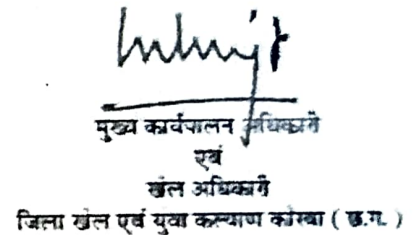 मुख्य कार्यपालन अधिकारी
एवं
खेल अधिकारी
जिला खेल एवं युवा कल्याण कोरबा ( छ.ग. )